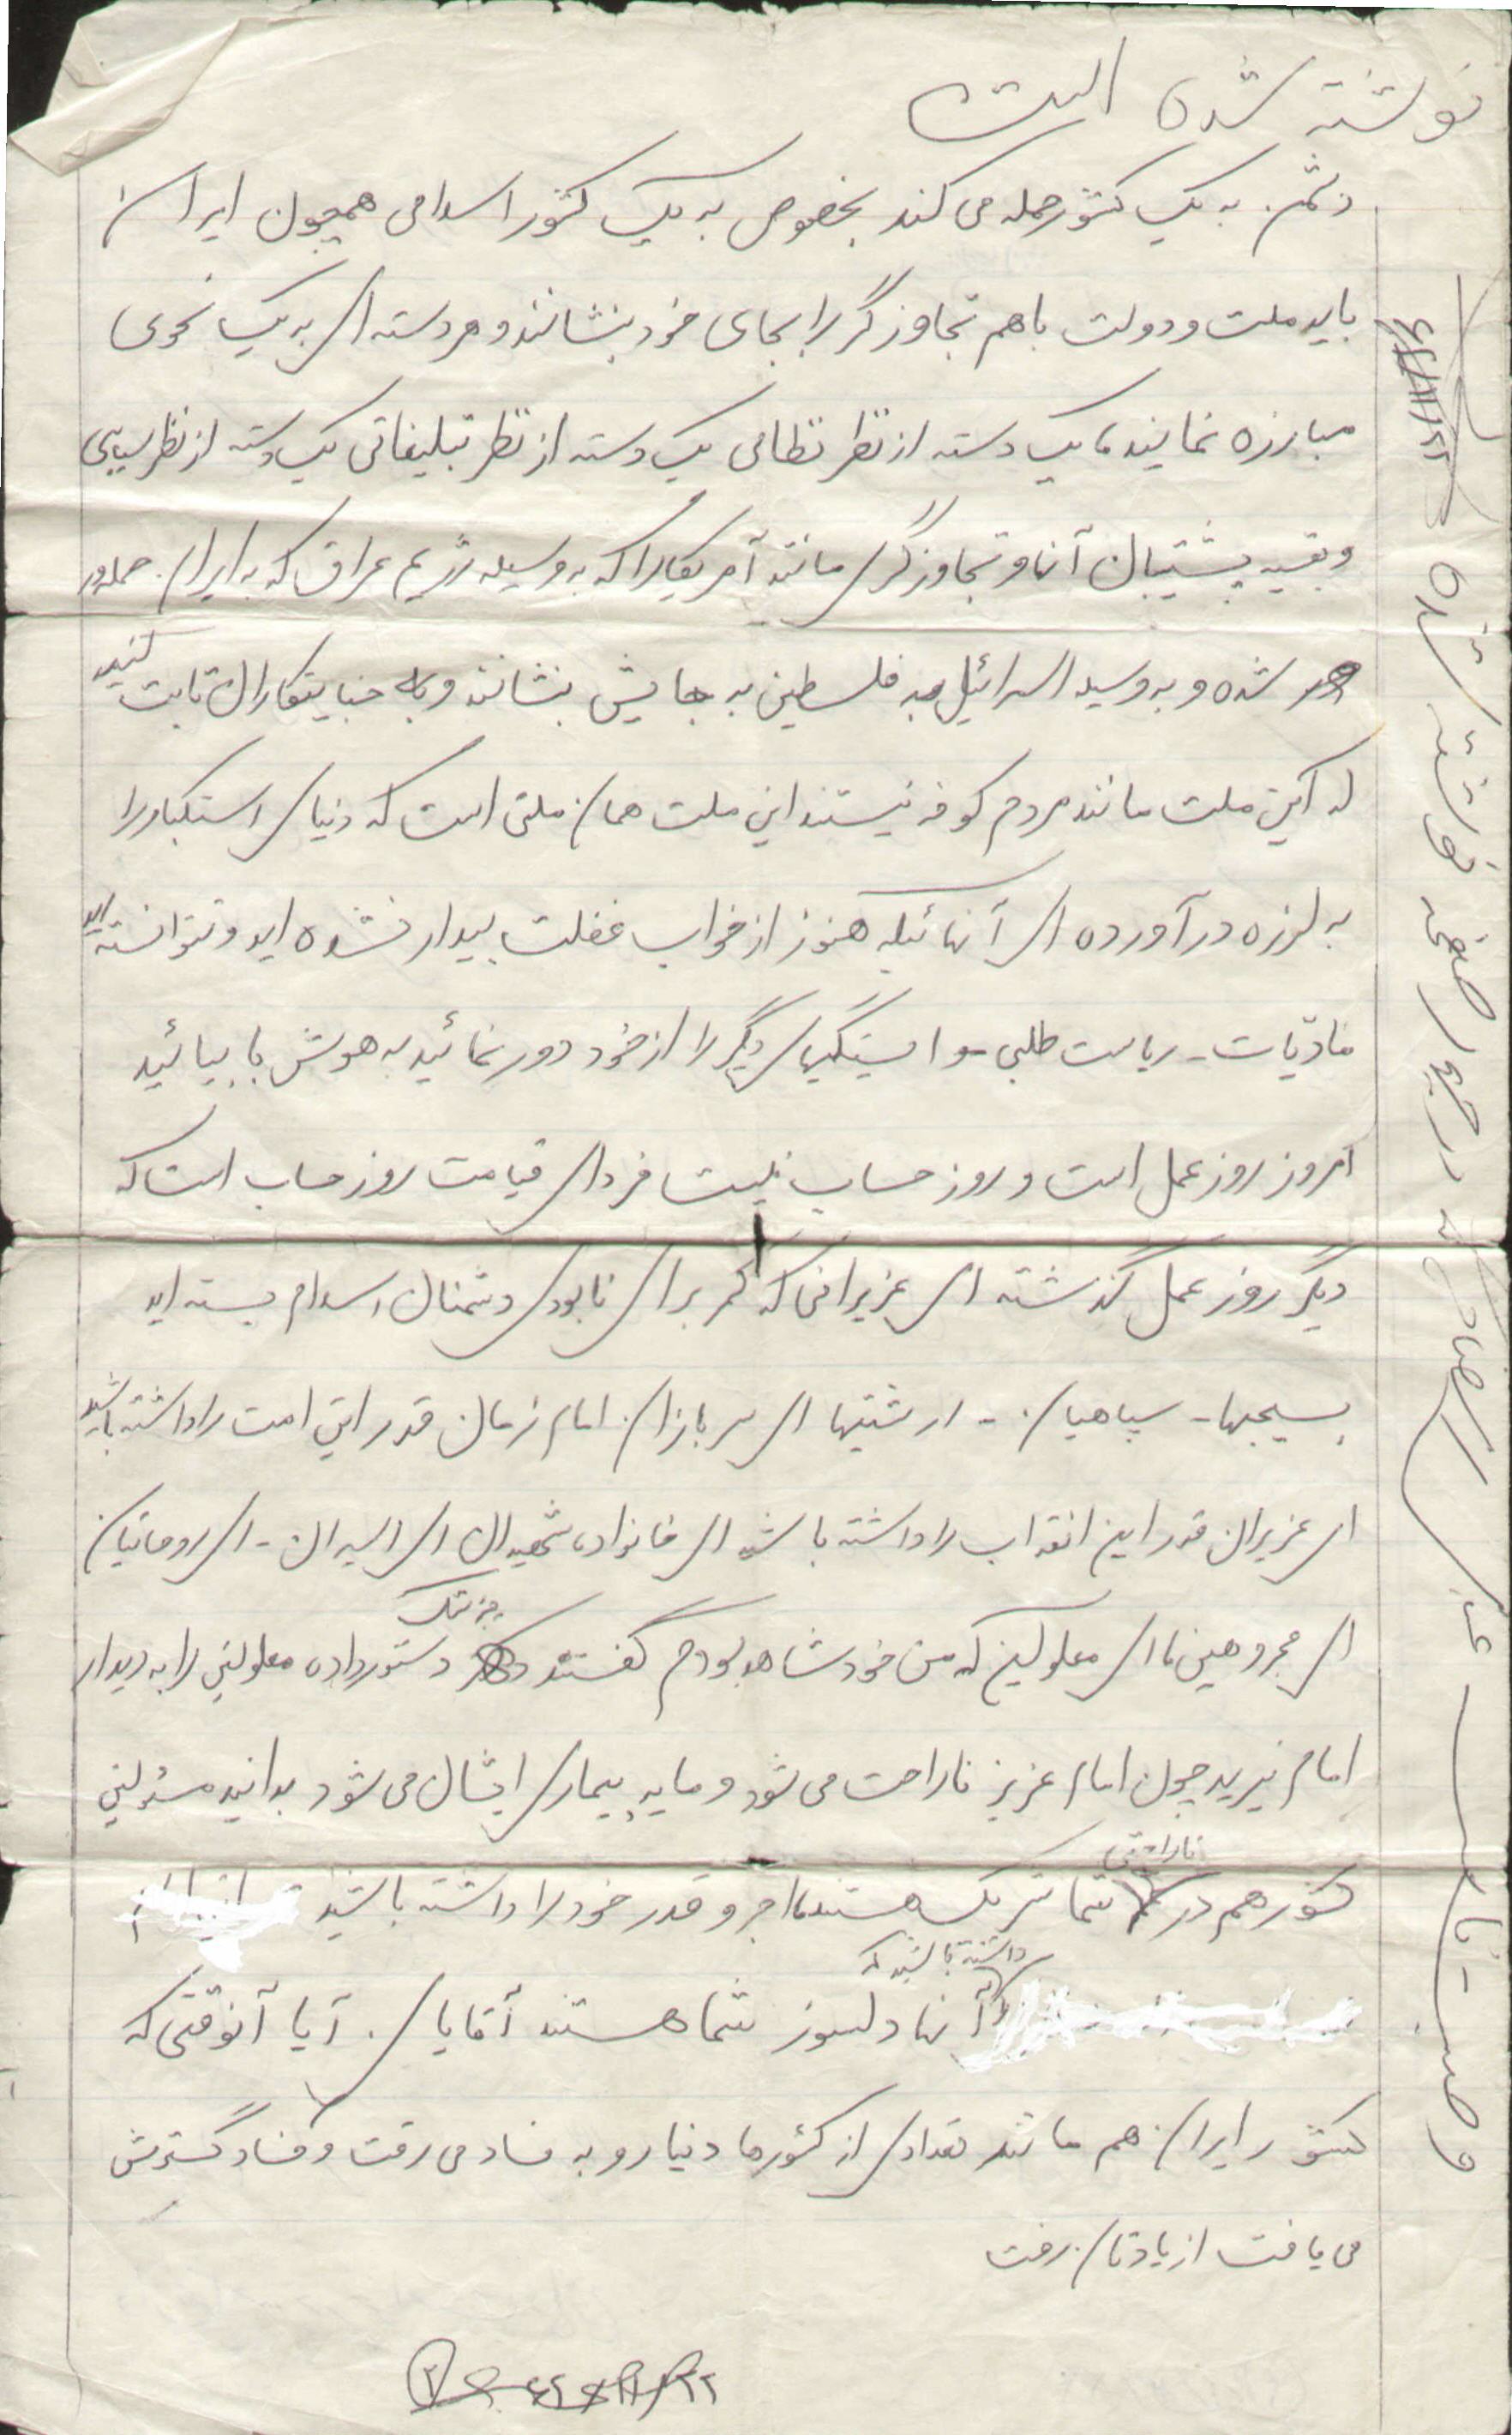 نوشته شده است
دشمن به یک کشور حمله می کند بخصوص به یک کشور اسلامی همچون ایران
باید ملت و دولت با هم تجاوزگر را بجای خود بنشانند و هر دسته ای به یک نحوی
مبارزه نمایند، یک دسته از نظر نظامی یک دسته از نظر تبلیغاتی یک دسته از نظر سیاسی
و بقیه پشتیبان آنان و تجاوزگری مانند آمریکا را که به وسیله رژیم عراق که به ایران حمله ور
شده و به وسیله اسرائیل به فلسطین به جایش بنشانند و به جنایتکاران ثابت کنید
که این ملت مانند مردم کوفه نیستند این ملت همان ملتی است که دنیای استکبار را
به لرزه در آورده ای آنهائیکه هنوز از خواب غفلت بیدار نشده اید و نتوانسته اید
مادیّات - ریاست طلبی - وابستگیهای دیگر را از خود دور نمائید به هوش بابیائید
امروز روز عمل است و روز حساب نیست فردای قیامت روز حساب است که
دیگر روز عمل گذشته ای عزیزانی که کمر برای نابودی دشمنان اسلام بسته اید
بسیجیها - سپاهیان - ارتشیها ای سربازان امام زمان قدر این امت را داشته باشید
ای عزیزان قدر این انقلاب را داشته باشید ای خانواده شهیدان ای اسیران - ای روحانیان
ای مجروحین، ای معلولین که من خود شاهد بودم گفتند پزشک دستور داده معلولین را به دیدار
امام نبرید چون امام عزیز ناراحت می شود و مایه بیماری ایشان می شود بدانید مسئولین
کشور هم در ناراحتی شما شریک هستند، اجر و قدر خود را داشته باشید
داشته باشید که آنها دلسوز شما هستند آقایان آیا آنوقتی که
کشور ایران هم مانند تعدادی از کشورها دنیا رو به فساد می رفت و فساد گسترش
می یافت از یادتان رفت
وصیت نامه
در دو صفحه نوشته شده